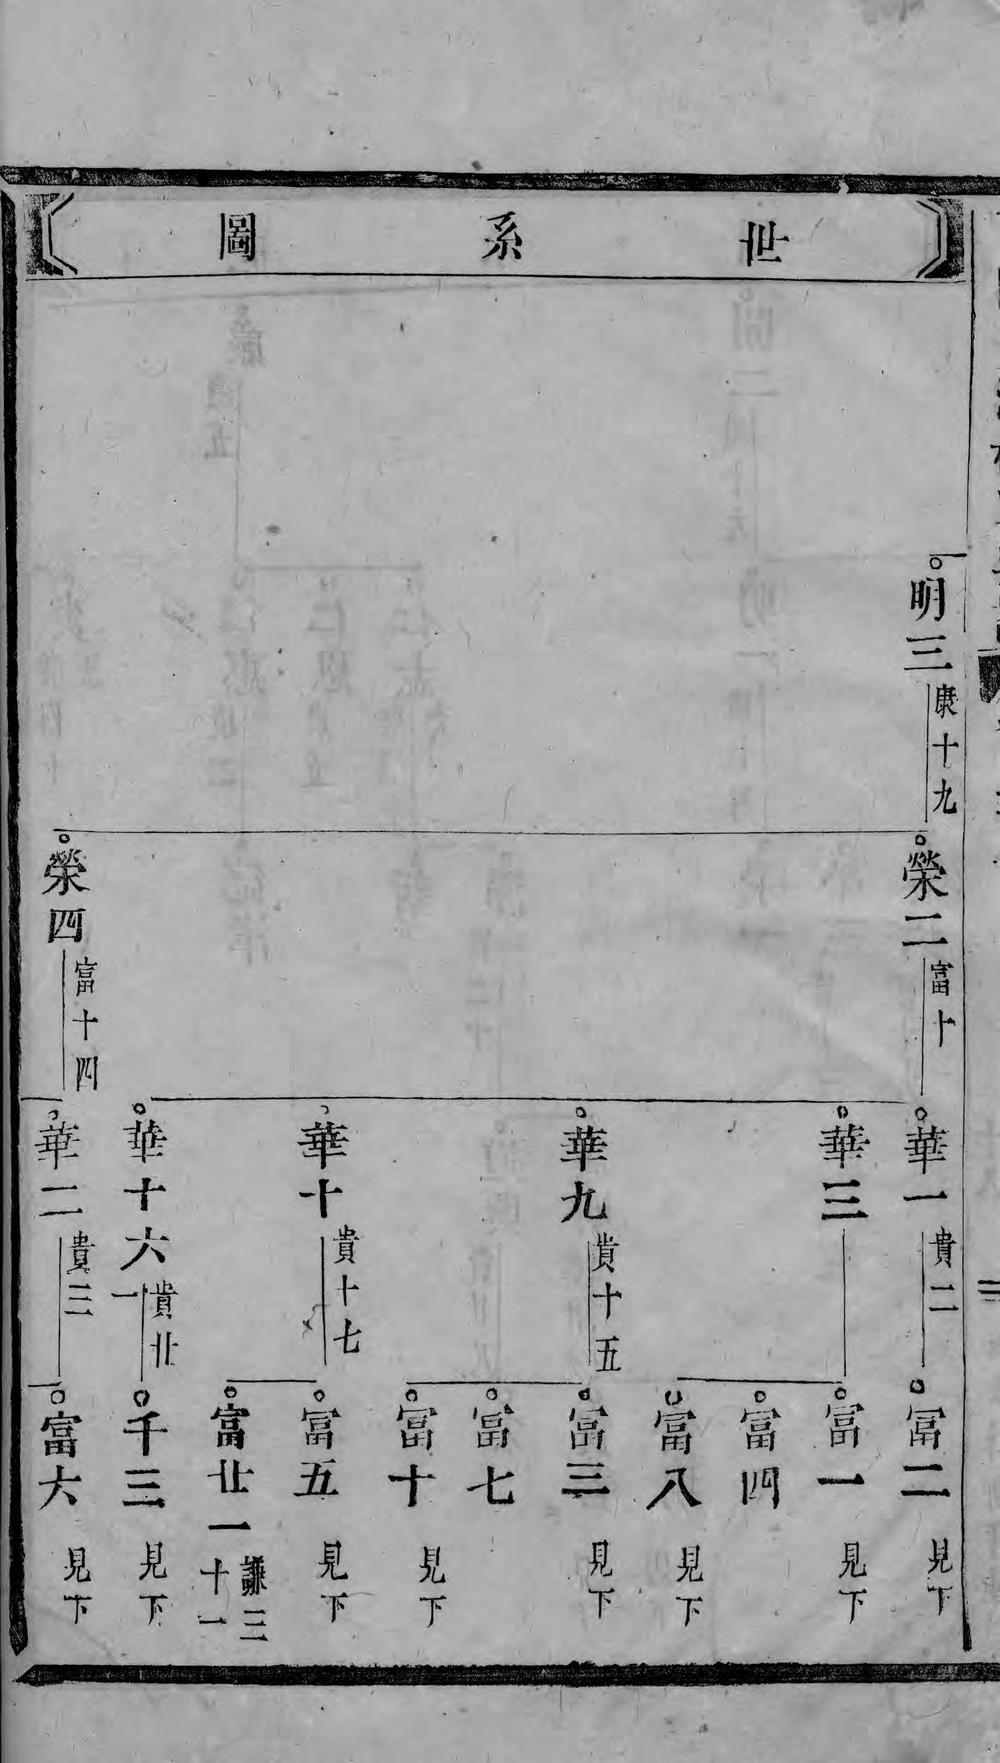 世系圖
明三 康十九
榮二 富十
榮四 富十四
華一 貴二
華三
華九 貴十五
華十 貴十七
華十六 貴廿一
華二 貴三
富二 見下
富一 見下
富四
富八 見下
富三 見下
富七
富十 見下
富五 見下
富廿一 謙三十一
千三 見下
富六 見下